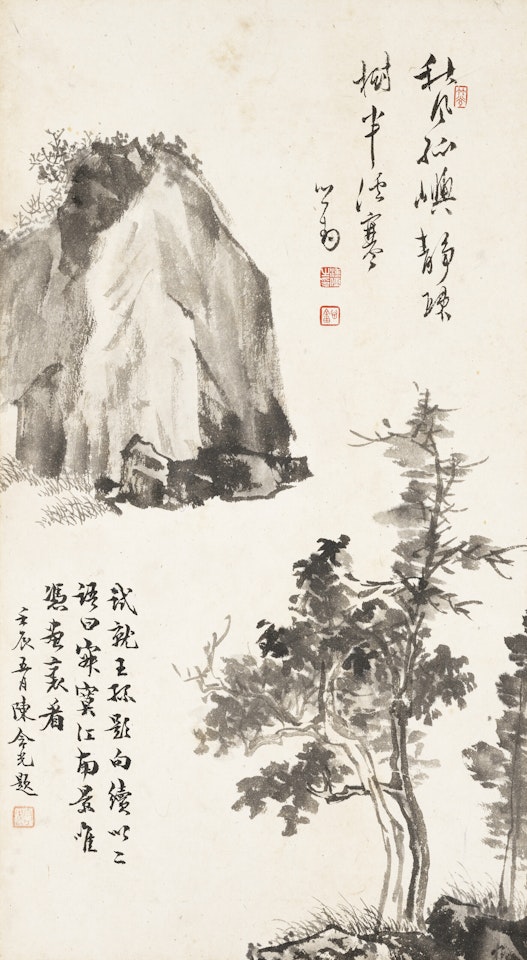 秋風孤嶼靜疎
樹半溪寒
心畬
試就王孫題句續以二
語曰寂寞江南景唯
憑画裏看
壬辰五月陳含光題